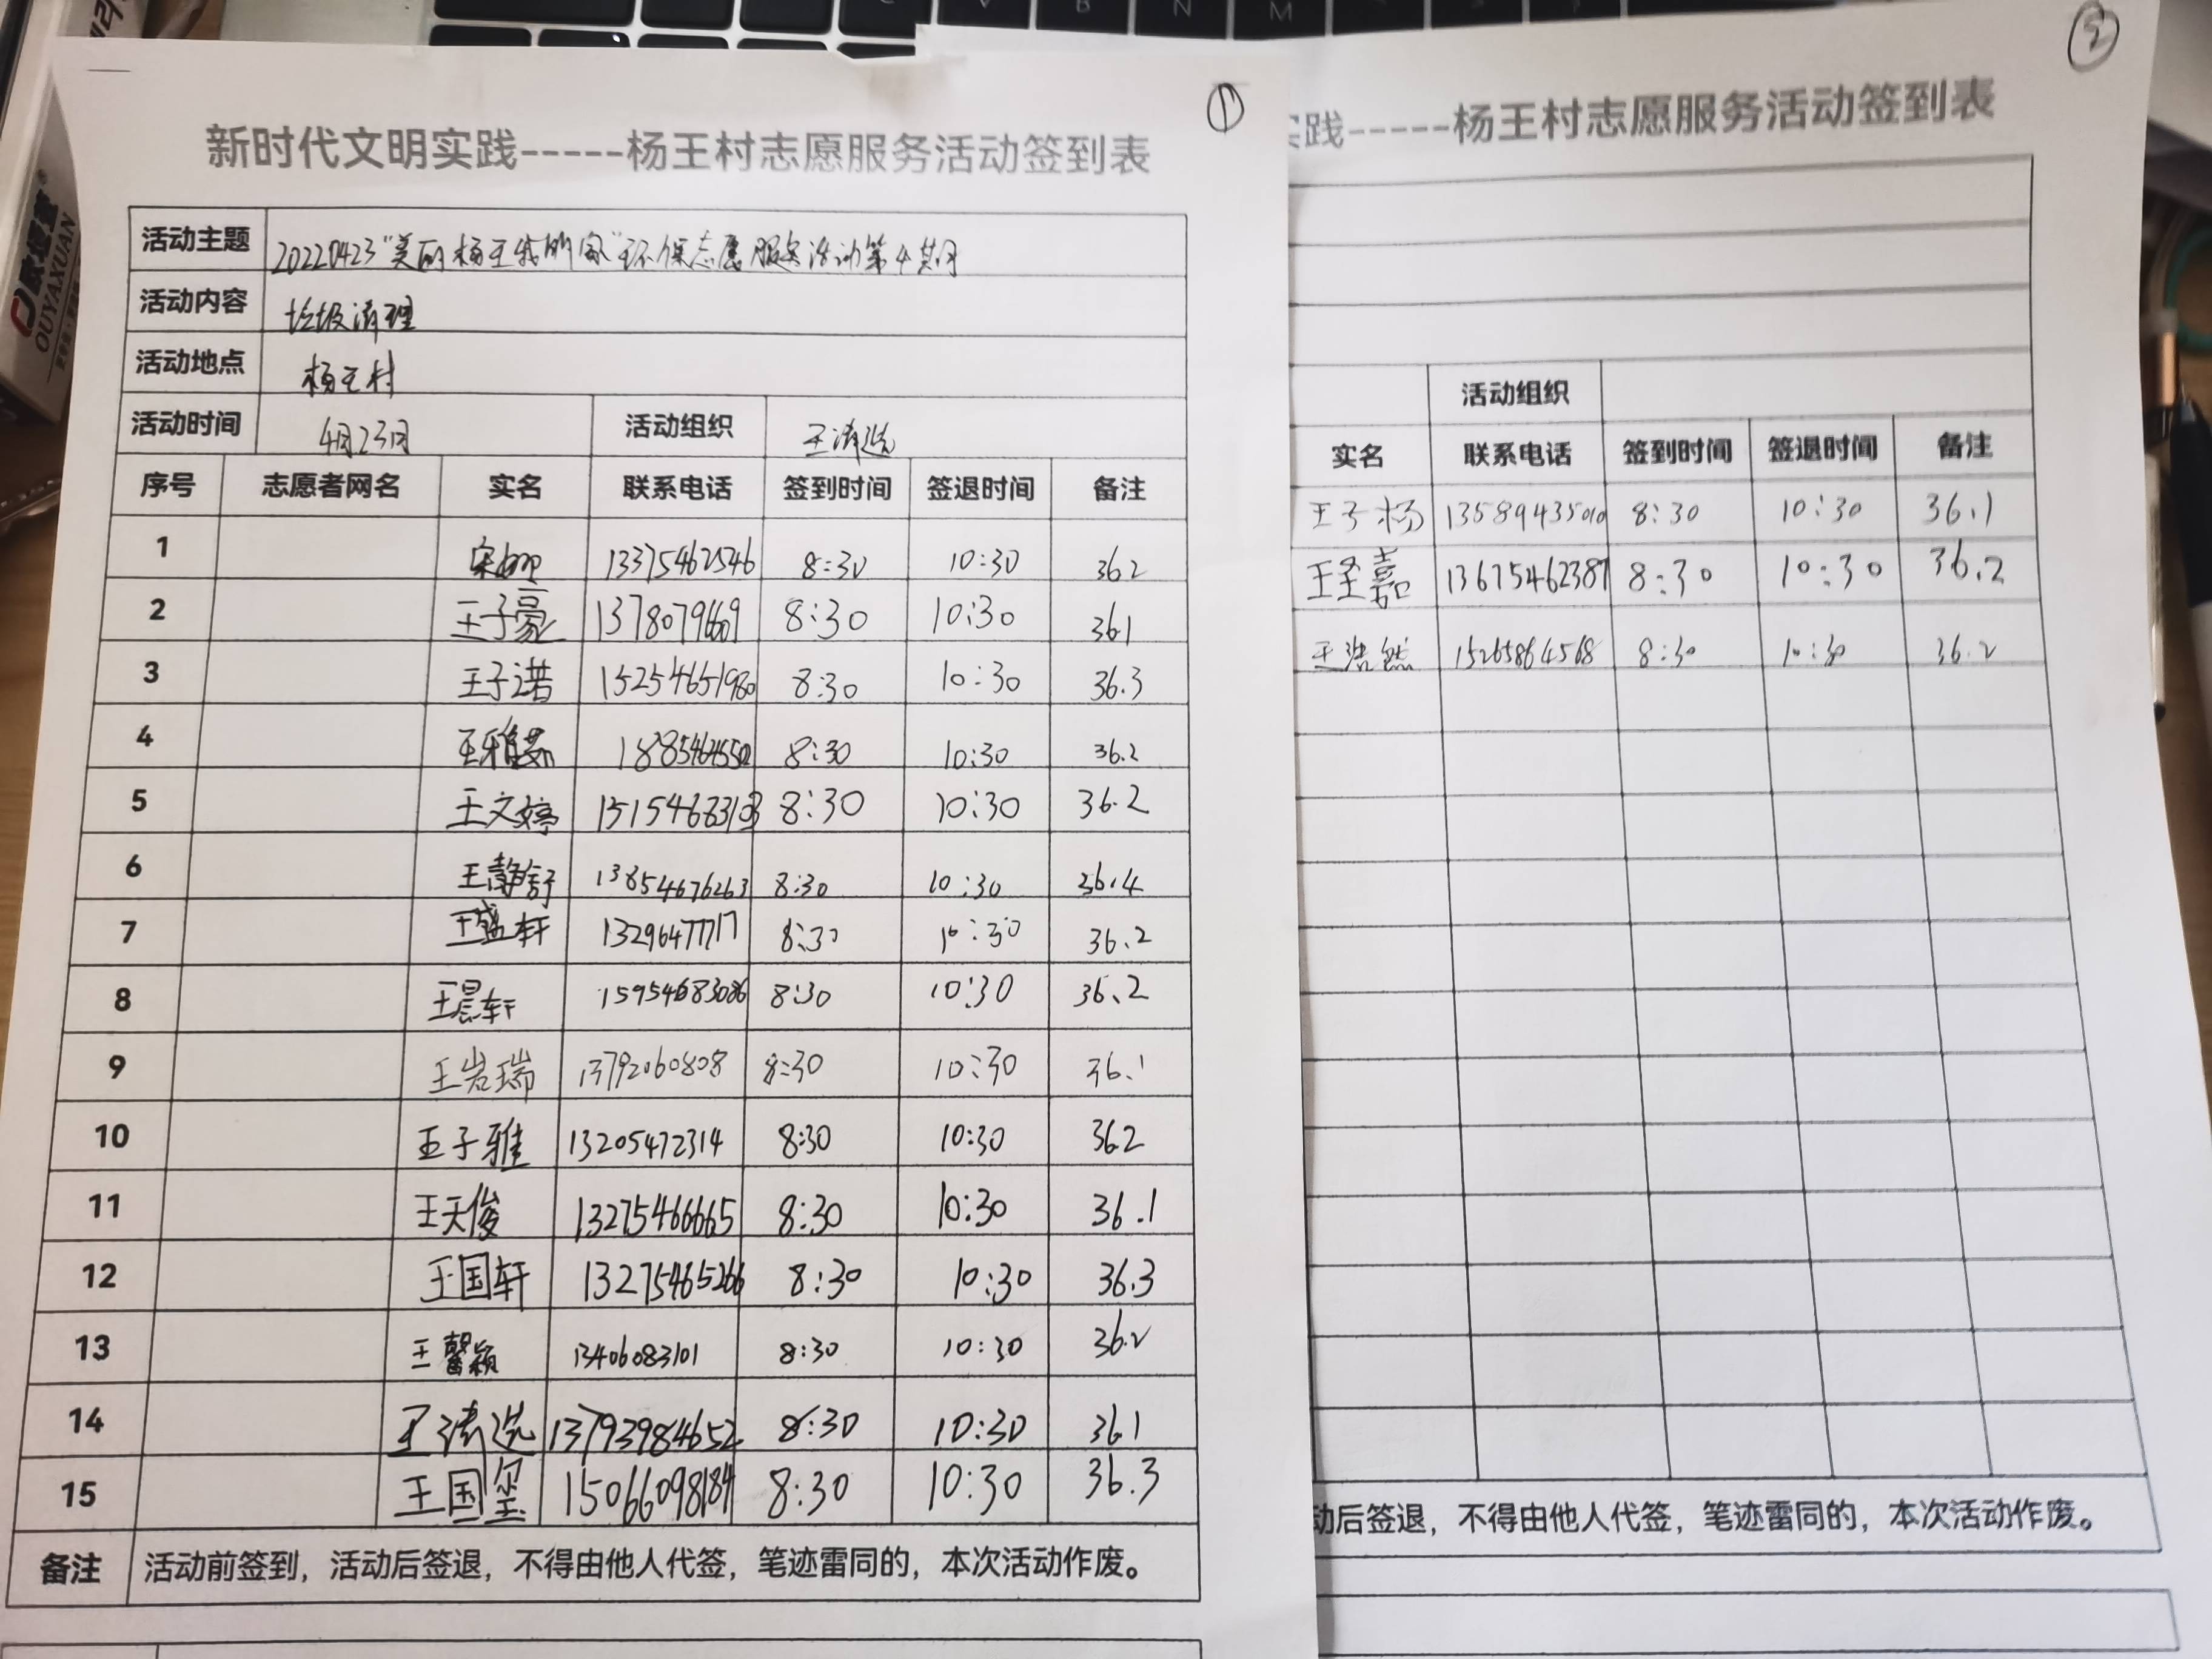 ①
新时代文明实践-----杨王村志愿服务活动签到表
活动主题 20220423"美丽杨王我的家"环保志愿服务活动第4期
活动内容 垃圾清理
活动地点 杨王村
活动时间 4月23日 活动组织
序号 志愿者网名 实名 联系电话 签到时间 签退时间 备注
1 宋娜 13375462546 8:30 10:30 36.2
2 王子豪 8:30 10:30 36.1
3 王子诺 15254651980 8:30 10:30 36.3
4 8:30 10:30 36.2
5 王文婷 8:30 10:30 36.2
6 王静舒 13854676263 8:30 10:30 36.4
7 王盛轩 8:30 10:30 36.2
8 王晨轩 15954683086 8:30 10:30 36.2
9 王岩瑞 13792060808 8:30 10:30 36.1
10 王子雅 13205472314 8:30 10:30 36.2
11 王天俊 13275466665 8:30 10:30 36.1
12 王国轩 13275465266 8:30 10:30 36.3
13 王馨颖 13406083101 8:30 10:30 36.2
14 13793984652 8:30 10:30 36.1
15 王国玺 15066098184 8:30 10:30 36.3
备注 活动前签到，活动后签退，不得由他人代签，笔迹雷同的，本次活动作废。
②
实践-----杨王村志愿服务活动签到表
活动组织
实名 联系电话 签到时间 签退时间 备注
王子杨 13589435010 8:30 10:30 36.1
王圣嘉 13675462387 8:30 10:30 36.2
王浩然 15265864568 8:30 10:30 36.2
动后签退，不得由他人代签，笔迹雷同的，本次活动作废。
OUYAXUAN
C V B N M